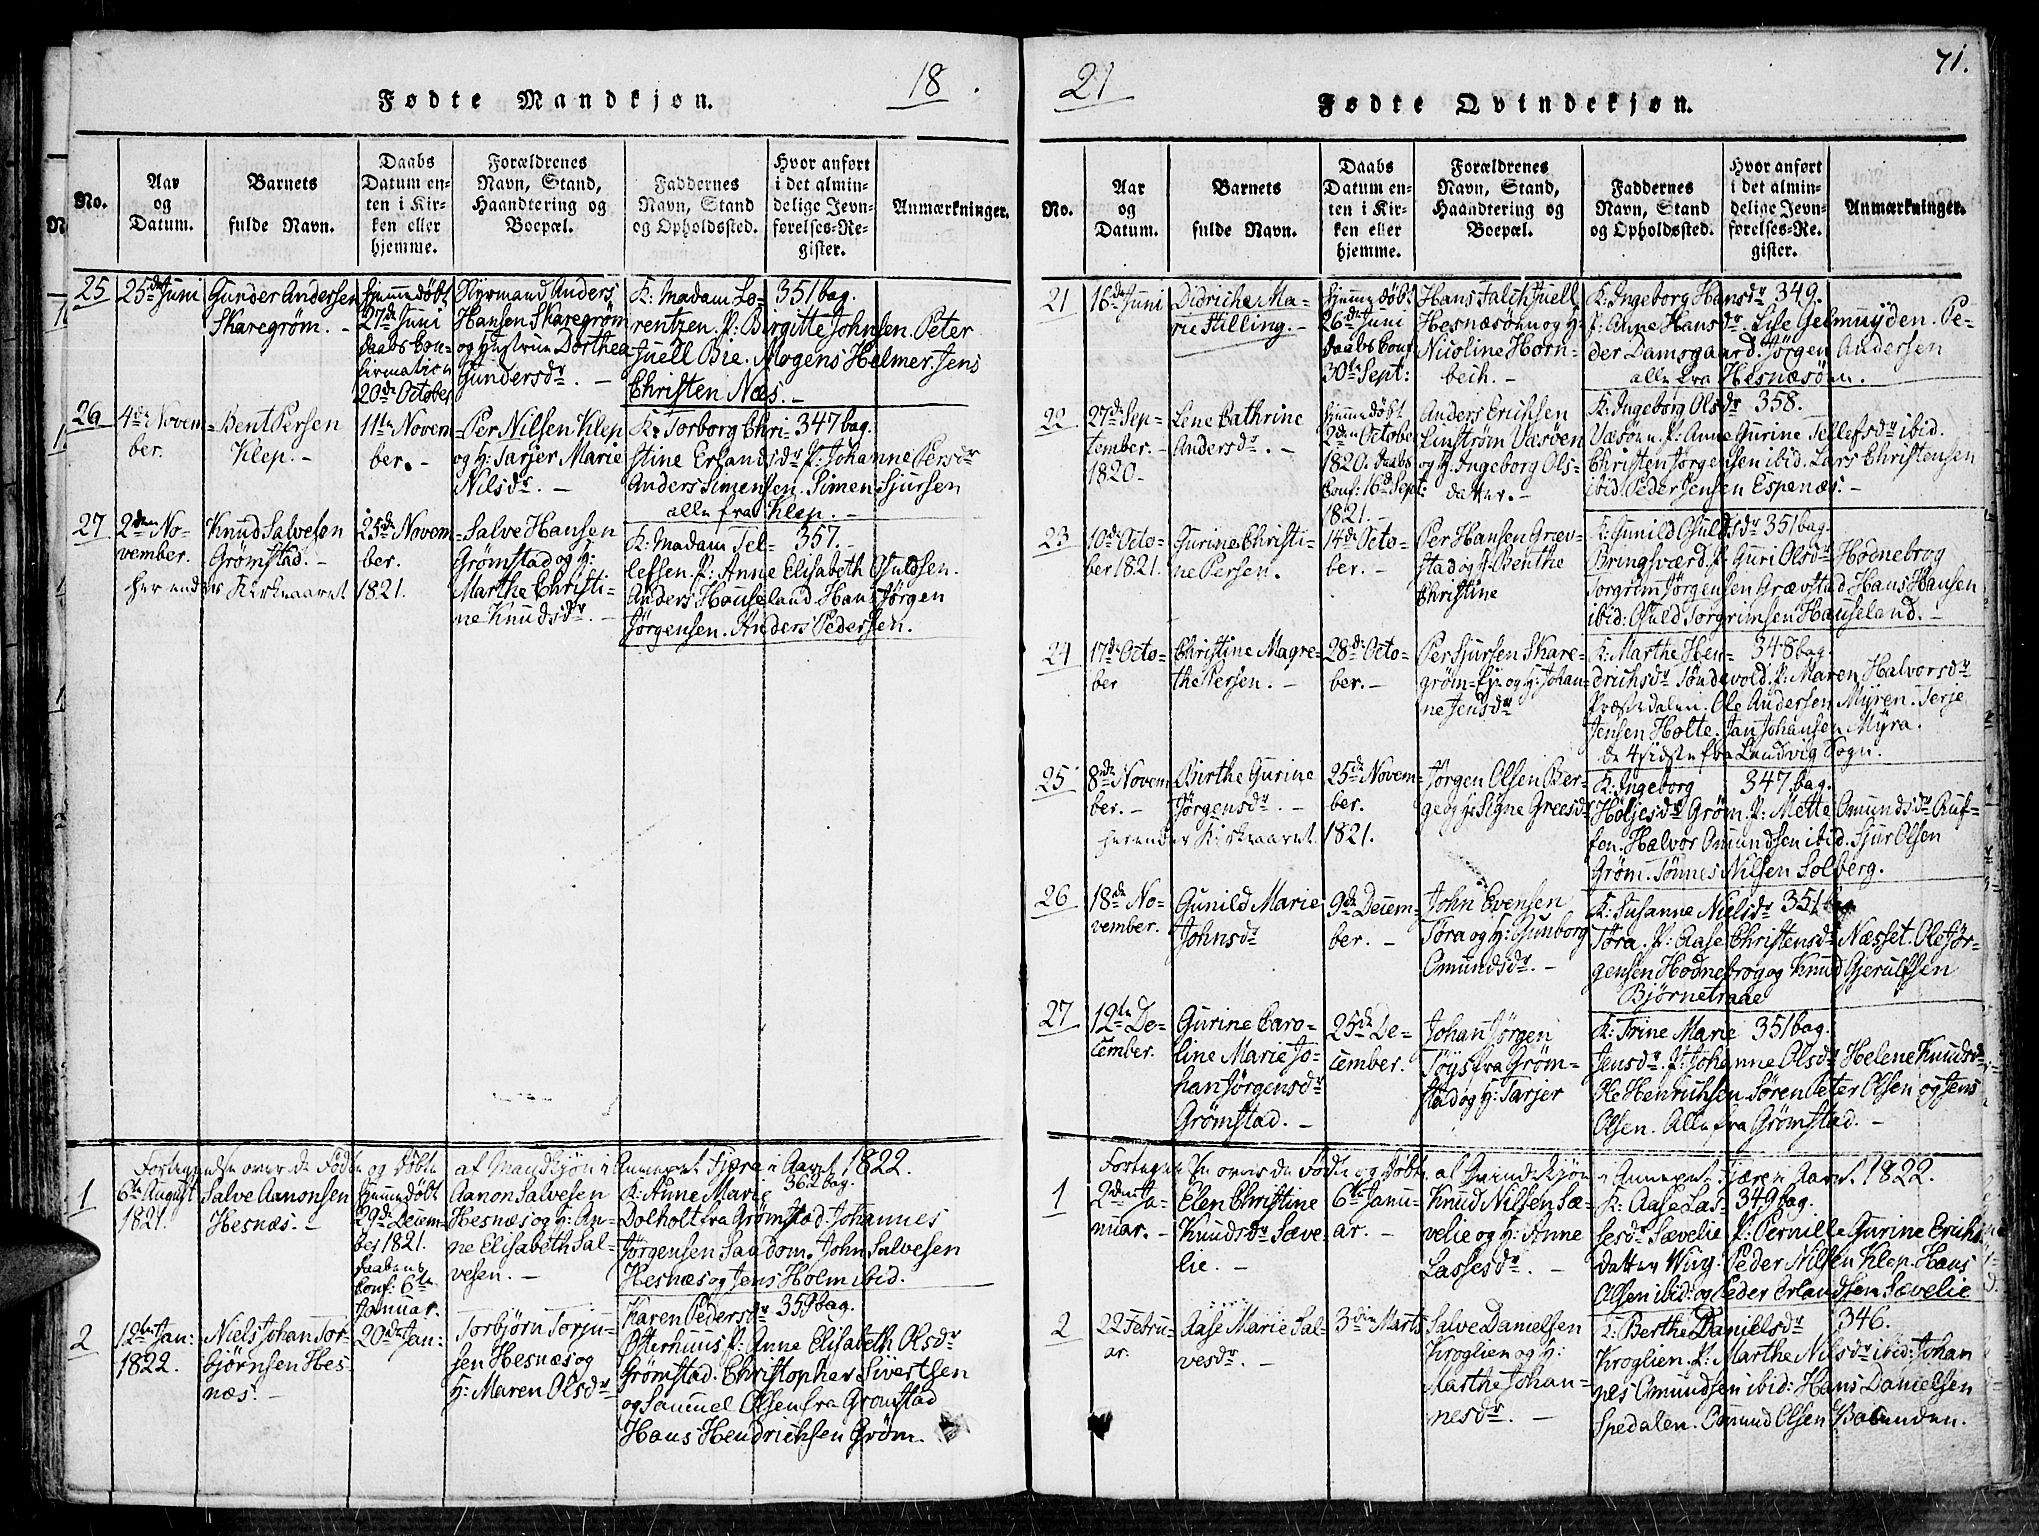 18
Fødte Mandkjøn.
No.
Aar
og
Datum.
Barnets
fulde Navn.
Daabs
Datum en-
ten i Kir-
ken eller
hjemme.
Forældrenes
Navn, Stand,
Haandtering og
Boepæl.
Faddernes
Navn, Stand
og Opholdssted.
Hvor anført
i det almin-
delige Jevn-
førelses-Re-
gister.
Anmærkninger.
25
25de Juni
Gunder Andersen
Skaregrøm. -
Hjemmedøbt
27de Juni
Daabs Con-
firmation
20de October
Styrmand Anders
Hansen Skaregrøm
og Hustrue Dorthea
Gundersdr. -
K: Madam Lo- 351 bag.
rentzen. P: Birgitte Johnsen. Peter
Juell Bie. Mogens Helmer. Jens
Christen Næs. -
26
4de Novem-
ber.
Bent Persen
Klep. -
11te Novem-
ber. -
Per Nilsen Klep
og H: Tarjer Marie
Nilsdr. -
K: Torborg Chri- 347 bag.
stine Erlandsdr P: Johanne Persdr
Anders Simensen. Simen Sjursen
alle fra Klep. -
27
2den No-
vember.
Knud Salvesen
Grømstad. -
25de Novem-
ber.
her ender Kirkeaaret 1821.
Salve Hansen
Grømstad og H:
Marthe Christi-
ne Knudsdr. -
K: Madam Tel- 357. -
lefsen. P: Anne Elisabeth Osuldsen.
Anders Hauseland. Hans Jørgen
Jørgensen. Anders Pedersen.
Fortegnelse over de Fødte og Døbte af Mandkjøn i Annexet Fjære i Aaret 1822.
1
6te August
1821.
Salve Aanonsen
Hesnæs. -
Hjemmedøbt
29de Decem-
ber 1821.
Daabens
Conf: 6te
Januar.
Aanon Salvesen
Hesnæs og H: An-
ne Elisabeth Sal-
vesen. -
K: Anne Marie 362 bag.
Dolholt fra Grømstad. Johannes
Jørgensen Saudom. John Salvesen
Hesnæs og Jens Holm ibid.
2
12te Jan:
1822.
Niels Johan Tor-
bjørnsen Hes-
næs. -
20de Jan:
Torbjørn Torju-
sen Hesnæs og
H: Maren Olsdr
Karen Pedersdr 359 bag.
Østerhuus P: Anne Elisabeth Olsdr
Grømstad. Christopher Sivertsen
og Samuel Olsen fra Grømstad
Hans Hendrichsen Grøm.
21
71.
Fødte Qvindekjøn.
No.
Aar
og
Datum.
Barnets
fulde Navn.
Daabs
Datum en-
ten i Kir-
ken eller
hjemme.
Forældrenes
Navn, Stand,
Haandtering og
Boepæl.
Faddernes
Navn, Stand
og Opholdssted.
Hvor anført
i det almin-
delige Jevn-
førelses-Re-
gister.
Anmærkninger.
21
16de Juni
Didriche Ma-
rie Stilling. -
Hjemmedøbt
26de Juni
Daabs Conf
30te Sept:
Hans Falch Juell
Hesnæsøen og H:
Nicoline Horn-
bech. -
K: Ingeborg Hansdr 349.
P: Anne Hansdr. Lise Gelmuyden. Pe-
der Damsgaard. Jørgen Andersen
alle fra Hesnæsøen.
22
27de Sep-
tember. -
1820.
Lene Cathrine
Andersdr. -
Hjemmedøbt
2den October
1820. Daabs
Conf: 16de Sept:
1821.
Anders Erichsen
Linstrøm Væsøen
og H. Ingeborg Ols-
datter. -
K: Ingeborg Olsdr 358.
Væsøen. P: Anne Gurine Tellefsdr ibid.
Christen Jørgensen ibid. Lars Christensen
ibid. Peder Jensen Espenæs. -
23
10de Octo-
ber 1821.
Gurine Christi-
ne Persen.
14de Octo-
ber. -
Per Hansen Græv-
stad og H Benthe
Christine
K: Gunild Osuldsdr 351 bag.
Bringsværd. P: Guri Olsdr Hodnebrog
Torgrim Jørgensen Grævstad. Hans Hansen
ibid: Osuld Torgrimsen Hauseland. -
24
17de Octo-
ber
Christine Magre-
the Persen. -
28de Octo-
ber. -
Per Sjursen Skare-
grøm- og H: Johan-
ne Jensdr
K: Marthe Hen- 348 bag.
drichsdr Tøndevold. P: Maren Halvorsdr
Præstedalen. Ole Andersen Myren. Terje
Jensen Holte. Jan Johansen Myra.
de 4 sidste fra Landvig Sogn.
25
8de Novem-
ber. -
Birthe Gurine
Jørgensdr. -
25de Novem-
ber.
her ender Kirkeaaret 1821.
Jørgen Olsen Ber-
ge og H: Signe Greesdr
K: Ingeborg 347 bag.
Holjesdr Grøm. P: Mette Omundsdr Ruf-
fen. Halvor Omundsen ibid. Sjur Olsen
Grøm. Tønnes Nilsen Solberg.
26
18de No-
vember.
Gunild Marie
Johnsdr
9de Decem-
ber. -
John Evensen
Tøra og H: Gunborg
Omundsdr. -
K: Susanne Nielsdr 351 bag
Tøra. P: Aase Christensdr Næsset. Ole Jør-
gensen Hodnebrog og Knud Gjerulfsen
Bjørnetraae
27
12te De-
cember.
Gurine Caro-
line Marie Jo-
han Jørgensdr
Grømstad. -
25de De-
cember.
Johan Jørgen
Tøys fra Grøm-
stad og H: Tarjer
K: Trine Marie 351 bag.
Jensdr. P: Johanne Olsdr Helene Knudsdr
Ole Henrichsen. Søren Peter Olsen og Jens
Olsen. Alle fra Grømstad. -
Fortegnelse over de Fødte og Døbte af Qvindekjøn i Annexet Fjære i Aaret 1822.
1
2den Ja-
nuar. -
Elen Christine
Knudsdr Sæve-
lie. -
6te Janu-
ar. -
Knud Nilsen Sæ-
velie og H: Anne
Lassesdr. -
K: Aase Las- 349 bag.
sesdr Sævelie P: Pernille Gurine Erichs
datter Wiig. Peder Nilsen Klep. Hans
Olsen ibid: og Peder Erlandsen Sævelie
2
22 Febru-
ar.
Aase Marie Sal-
vesdr. -
3die Marts
Salve Danielsen
Kroglien og H:
Marthe Johan-
nesdr. -
K: Berthe Danielsdr 346.
Kroglien. P: Marthe Nilsdr ibid: Johan
nes Omundsen ibid: Hans Danielsen
Spedalen. Omund Olsen Baanden.